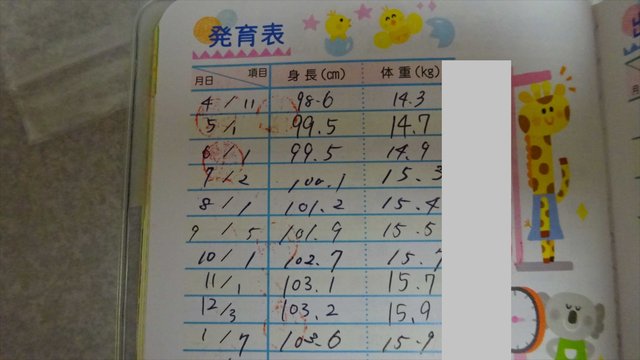 発育表
項目
月日 身長(cm) 体重(kg)
4/11 98.6 14.3
5/1 99.5 14.7
6/1 99.5 14.9
7/2 100.1 15.3
8/1 101.2 15.4
9/5 101.9 15.5
10/1 102.7 15.7
11/1 103.1 15.7
12/3 103.2 15.9
1/7 103.6 15.9